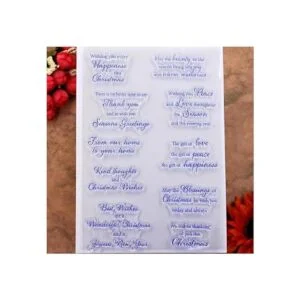 Wishing you every
Happiness
this
Christmas
There is no better time to say
Thank you
and to wish you
Seasons Greetings
From our home
to your home
Kind thoughts
and
Christmas Wishes
Best Wishes
for a
Wonderful Christmas
and a
Joyous New Year
Wishing you Peace
and Love throughout
the Season
and the coming year
The gift of love
the gift of peace
the gift of happiness
May the Blessings of
Christmas be with you
today and always
Christmas